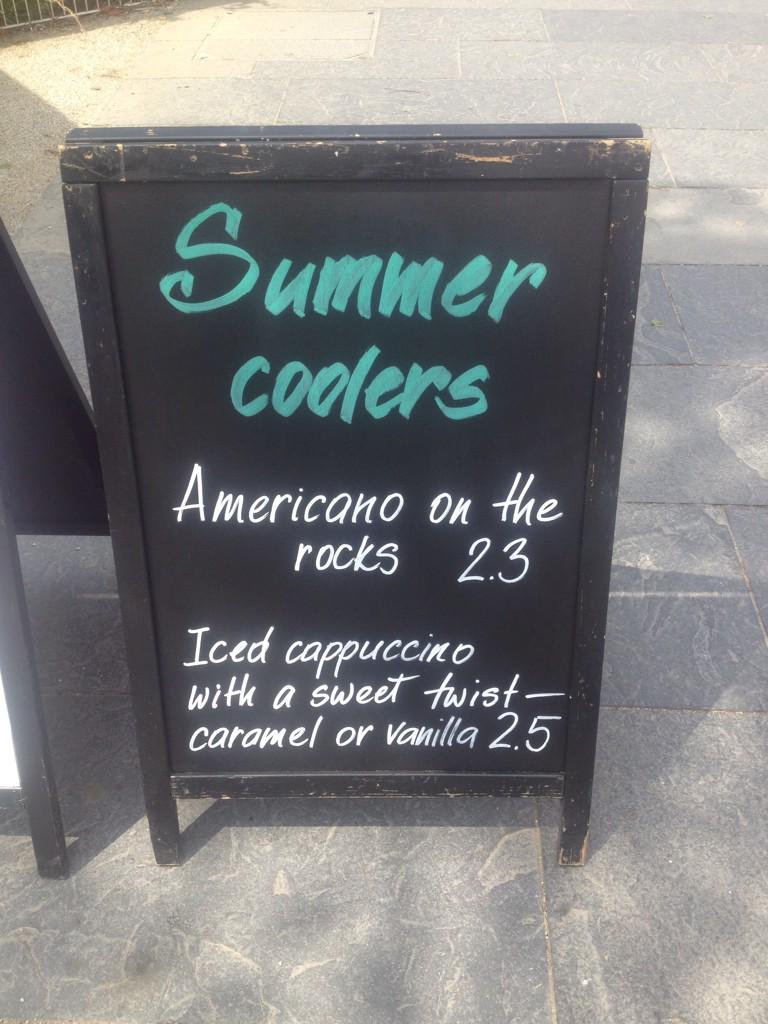 Summer
coolers
Americano on the
rocks 2.3
Iced cappuccino
with a sweet twist—
caramel or vanilla 2.5